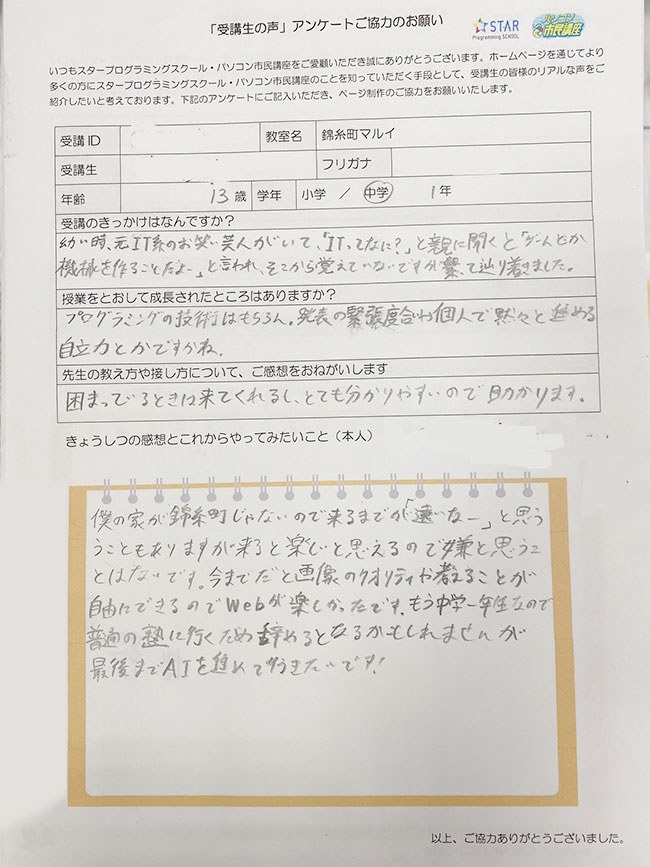 「受講生の声」アンケートご協力のお願い
STAR
Programming SCHOOL
パソコン
市民講座
いつもスタープログラミングスクール・パソコン市民講座をご愛顧いただき誠にありがとうございます。ホームページを通じてより
多くの方にスタープログラミングスクール・パソコン市民講座のことを知っていただく手段として、受講生の皆様のリアルな声をご
紹介したいと考えております。下記のアンケートにご記入いただき、ページ制作のご協力をお願いいたします。
受講ID 教室名 錦糸町マルイ
受講生 フリガナ
年齢 13歳 学年 小学 / 中学 1年
受講のきっかけはなんですか?
幼い時、元IT系のお笑い芸人がいて、「ITってなに?」と親に聞くと「ゲームとか
機械を作ることだよー」と言われ、そこから覚えていないですが繋って辿り着きました。
授業をとおして成長されたところはありますか?
プログラミングの技術はもちろん。発表の緊張度合いや個人で黙々と進める
自立力とかですかね。
先生の教え方や接し方について、ご感想をおねがいします
困まっているときは来てくれるし、とても分かりやすいので助かります。
きょうしつの感想とこれからやってみたいこと(本人)
僕の家が錦糸町じゃないので来るまでが「遠いなー」と思う
うこともありますが来ると楽しいと思えるので嫌と思うこ
とはないです。今までだと画像のクオリティや考えることが
自由にできるのでWebが楽しかったです。もう中学一年生なので
普通の塾に行くため辞めるとなるかもしれませんが
最後までAIを進めて行きたいです!
以上、ご協力ありがとうございました。